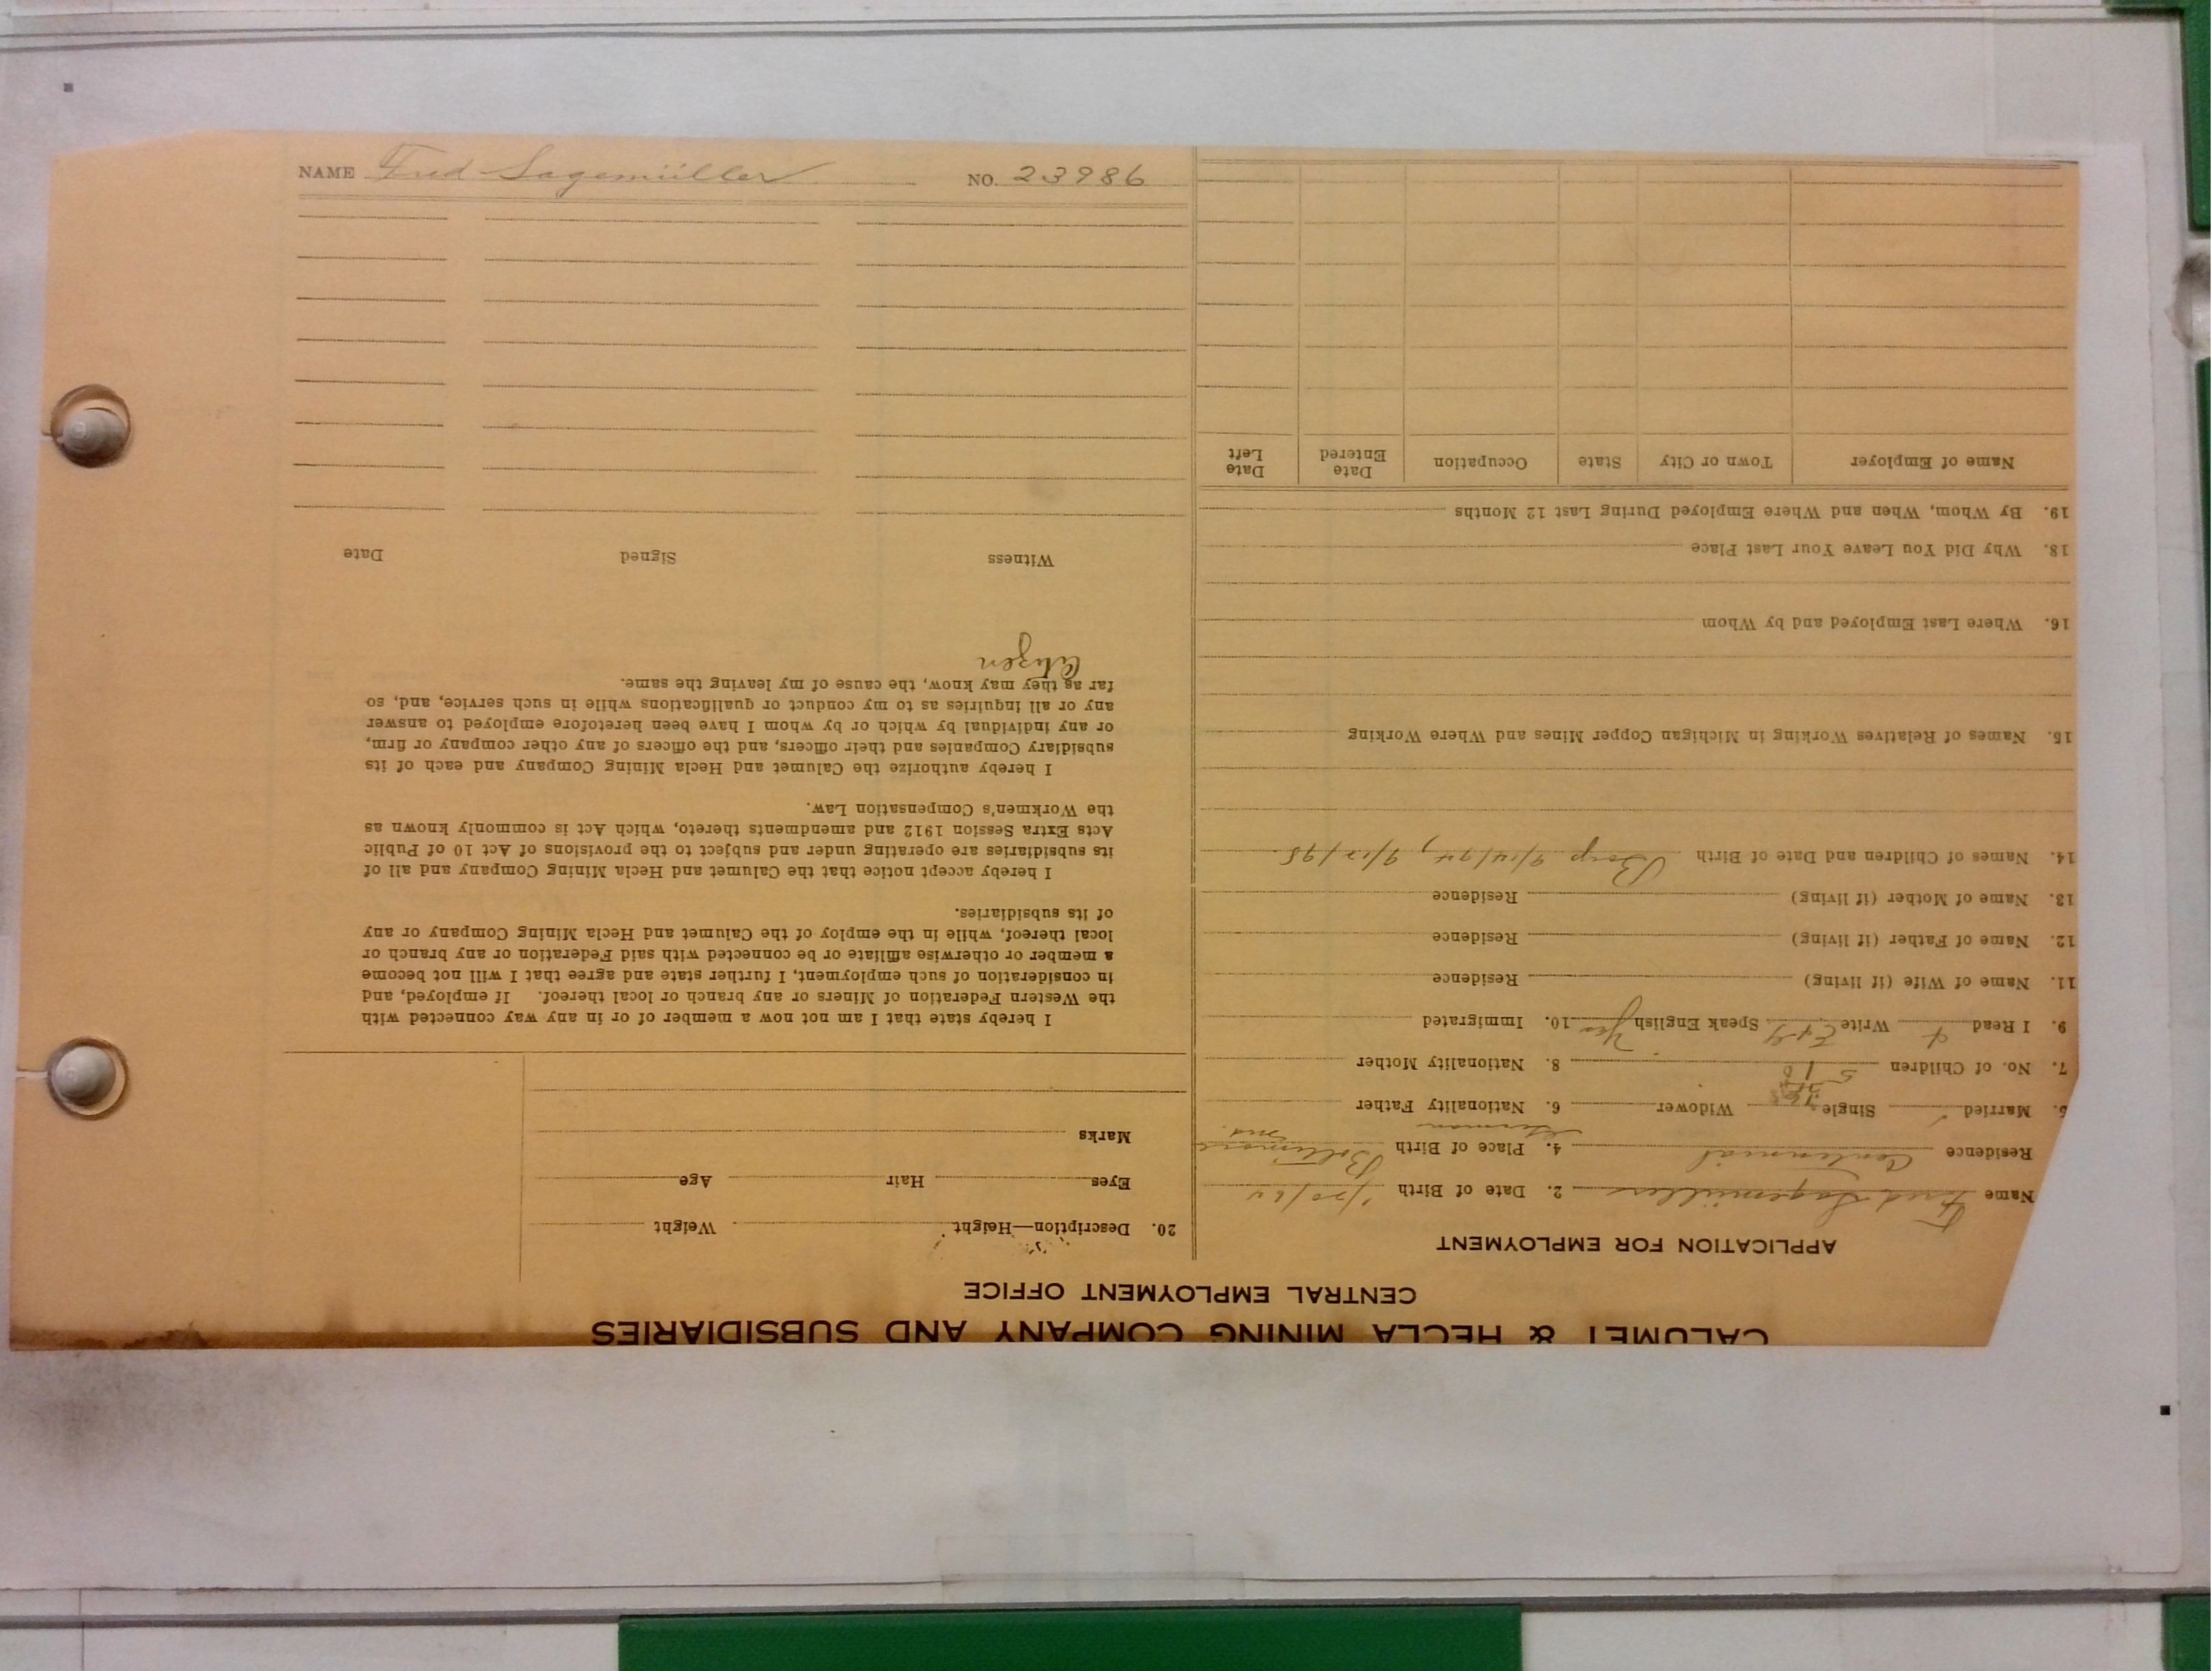 NAME Fred Sagemüller NO. 23986
CALUMET & HECLA MINING COMPANY AND SUBSIDIARIES
CENTRAL EMPLOYMENT OFFICE
APPLICATION FOR EMPLOYMENT
Name Fred Sagemüller 2. Date of Birth
Residence Centennial 4. Place of Birth Baltimore Md.
Married Single Widower 6. Nationality Father German
7. No. of Children 8. Nationality Mother
9. I Read Write Speak English Yes 10. Immigrated
11. Name of Wife (if living) Residence
12. Name of Father (if living) Residence
13. Name of Mother (if living) Residence
14. Names of Children and Date of Birth Boys
15. Names of Relatives Working in Michigan Copper Mines and Where Working
16. Where Last Employed and by Whom
18. Why Did You Leave Your Last Place
19. By Whom, When and Where Employed During Last 12 Months
Name of Employer Town or City State Occupation Date Entered Date Left
20. Description—Height Weight
Eyes Hair Age
Marks
I hereby state that I am not now a member of or in any way connected with
the Western Federation of Miners or any branch or local thereof. If employed, and
in consideration of such employment, I further state and agree that I will not become
a member or otherwise affiliate or be connected with said Federation or any branch or
local thereof, while in the employ of the Calumet and Hecla Mining Company or any
of its subsidiaries.
I hereby accept notice that the Calumet and Hecla Mining Company and all of
its subsidiaries are operating under and subject to the provisions of Act 10 of Public
Acts Extra Session 1912 and amendments thereto, which Act is commonly known as
the Workmen's Compensation Law.
I hereby authorize the Calumet and Hecla Mining Company and each of its
subsidiary Companies and their officers, and the officers of any other company or firm,
or any individual by which or by whom I have been heretofore employed to answer
any or all inquiries as to my conduct or qualifications while in such service, and, so
far as they may know, the cause of my leaving the same.
Citizen
Witness Signed Date